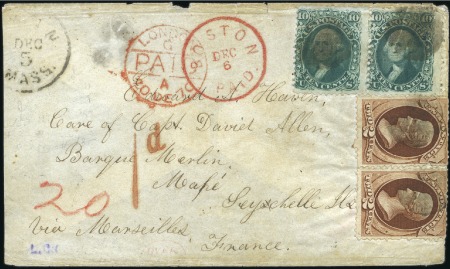 LONDON
PAID
BOSTON
DEC
6
PAID
DEC
5
MASS.
10 10
10 10
1d
Care of Capt. David Allen,
Barque Merlin,
Mahé
Seychelle Is
20
via Marseilles,
France.